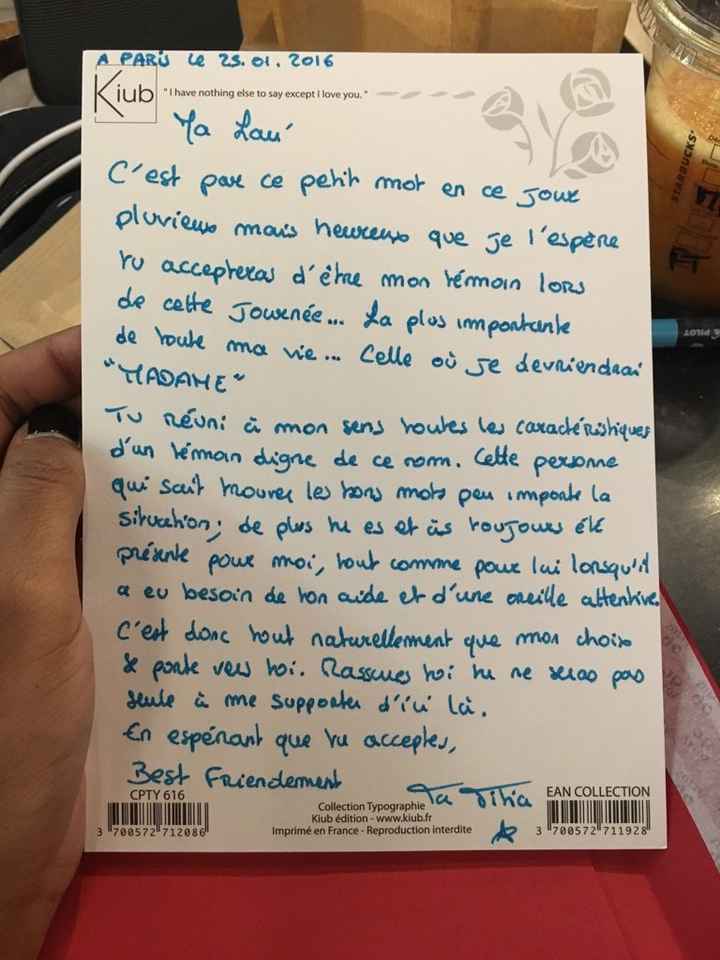 A PARIS LE 25.01.2016
Kiub
"I have nothing else to say except i love you."
Ma Lau'
C'est par ce petit mot en ce jour
pluvieux mais heureux que je l'espère
tu accepteras d'être mon témoin lors
de cette journée... La plus importante
de toute ma vie... Celle où je devriendrai
"MADAME"
Tu réuni à mon sens toutes les caractéristiques
d'un témoin digne de ce nom. Cette personne
qui sait trouver les bons mots peu importe la
situation; de plus tu es et as toujours été
présente pour moi, tout comme pour lui lorsqu'il
a eu besoin de ton aide et d'une oreille attentive.
C'est donc tout naturellement que mon choix
se porte vers toi. Rassures toi tu ne seras pas
seule à me supporter d'ici là.
En espérant que tu acceptes,
Best Friendement
Ta Titia
CPTY 616
3 700572 712086
Collection Typographie
Kiub édition - www.kiub.fr
Imprimé en France - Reproduction interdite
EAN COLLECTION
3 700572 711928
STARBUCKS
PILOT